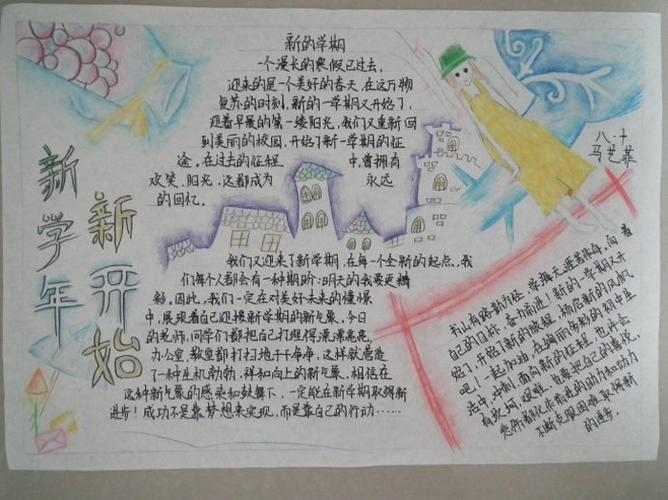 新的学期
一个漫长的寒假已过去，
迎来的是一个美好的春天，在这万物
复苏的时刻，新的一学期又开始了，
迎着早晨的第一缕阳光，我们又重新回
到美丽的校园，开始了新一学期的征
途。在过去的征程中，曾拥有
欢笑、阳光，这都成为永远
的回忆。
新学年
新开始
八.十
马艺菲
我们又迎来了新学期，在每一个全新的起点，我
们每个人都会有一种期盼：明天的我要更精
彩。因此，我们一定在对美好未来的憧憬
中，展现着自己迎接新学期的新气象，今日
的老师，同学们都把自己打理得漂漂亮亮，
办公室，教室都打扫地干干净净，这样就营造
了一种生机勃勃，祥和向上的新气象。相信在
这种新气象的感染和鼓舞下，一定能在新学期取得新
进步！成功不是靠梦想来实现，而是靠自己的行动……
书山有路勤为径，学海无涯苦作舟，向着
自己的目标，奋力前进！新的一学期又开
始了，开始了新的旅程，扬起新的风帆
吧！一起加油，在绚丽而多彩的初中生
活中，冲刺！面向新的征程，也许会
有坎坷、艰难，也要把自己的喜悦、
悲伤都化作前进的动力和动力
不断克服困难取得新
的进步。